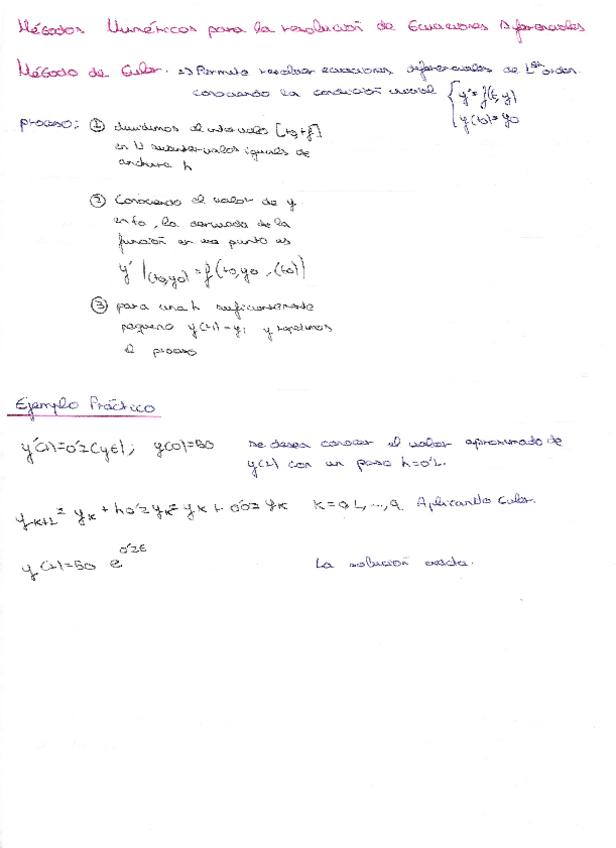 Métodos Numéricos para la resolución de Ecuaciones Diferenciales
Método de Euler. => Permite resolver ecuaciones diferenciales de 1er orden
conociendo la condición inicial { y' = f(t, y)
y(t0) = y0
proceso: ① dividimos el intervalo [t0, tf]
en N subintervalos iguales de
anchura h
② Conociendo el valor de y
en t0, la derivada de la
función en ese punto es
y' |(t0,y0) = f(t0, y0, (t0))
③ para una h suficientemente
pequeño y(t1) = y1 y repetimos
el proceso
Ejemplo Práctico
y'(t) = 0'2 (y(t)); y(0) = 50 se desea conocer el valor aproximado de
y(1) con un paso h = 0'1.
yK+1 = yK + h 0'2 yK = yK + 0'02 yK K = 0, 1, ..., 9. Aplicando Euler.
y(t) = 50 e^0'2t La solución exacta.